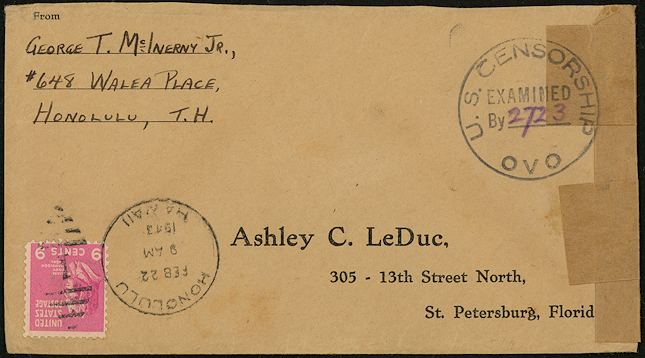 From
GEORGE T. McINERNY JR.,
#648 WALEA PLACE,
HONOLULU, T.H.
U.S. CENSORSHIP
EXAMINED
By 2723
OVO
HONOLULU
FEB 22
9 AM
1943
HAWAII
UNITED
STATES
POSTAGE
9 CENTS 9
Ashley C. LeDuc,
305 - 13th Street North,
St. Petersburg, Florid